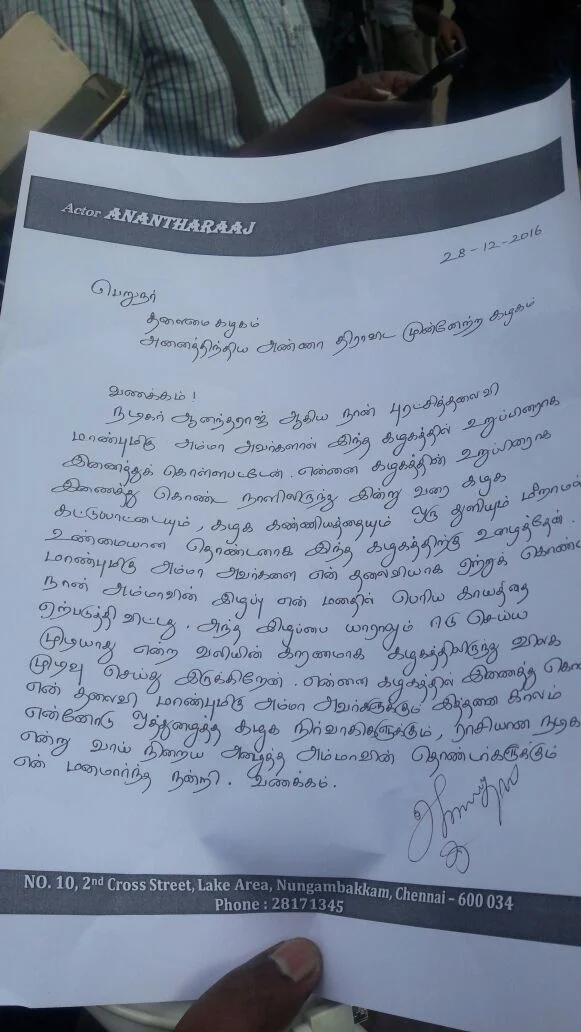 Actor ANANTHARAAJ
28-12-2016
பெறுநர்
தலைமை கழகம்
அனைத்திந்திய அண்ணா திராவிட முன்னேற்ற கழகம்
வணக்கம்!
நடிகர் ஆனந்தராஜ் ஆகிய நான் புரட்சித்தலைவி
மாண்புமிகு அம்மா அவர்களால் இந்த கழகத்தில் உறுப்பினராக
இணைத்துக் கொள்ளபட்டேன். என்னை கழகத்தின் உறுப்பினராக
இணைத்து கொண்ட நாளிலிருந்து இன்று வரை கழக
கட்டுபாட்டையும், கழக கண்ணியத்தையும் ஒரு துளியும் மீறாமல்
உண்மையான தொண்டனாக இந்த கழகத்திற்கு உழைத்தேன்.
மாண்புமிகு அம்மா அவர்களை என் தலைவியாக ஏற்றுக்
நான் அம்மாவின் இழப்பு என் மனதில் பெரிய காயத்தை
ஏற்படுத்தி விட்டது. அந்த இழப்பை யாராலும் ஈடு செய்ய
முடியாது என்ற வலியின் காரணமாக கழகத்திலிருந்து விலக
முடிவு செய்து இருக்கிறேன். என்னை கழகத்தில் இணைத்த
என் தலைவி மாண்புமிகு அம்மா அவர்களுக்கும் இத்தனை காலம்
என்னோடு ஒத்துழைத்த கழக நிர்வாகிகளுக்கும், ராசியான
என்று வாய் நிறைய அழைத்த அம்மாவின் தொண்டர்களுக்கும்
என் மனமார்ந்த நன்றி. வணக்கம்.
NO. 10, 2nd Cross Street, Lake Area, Nungambakkam, Chennai - 600 034
Phone : 28171345